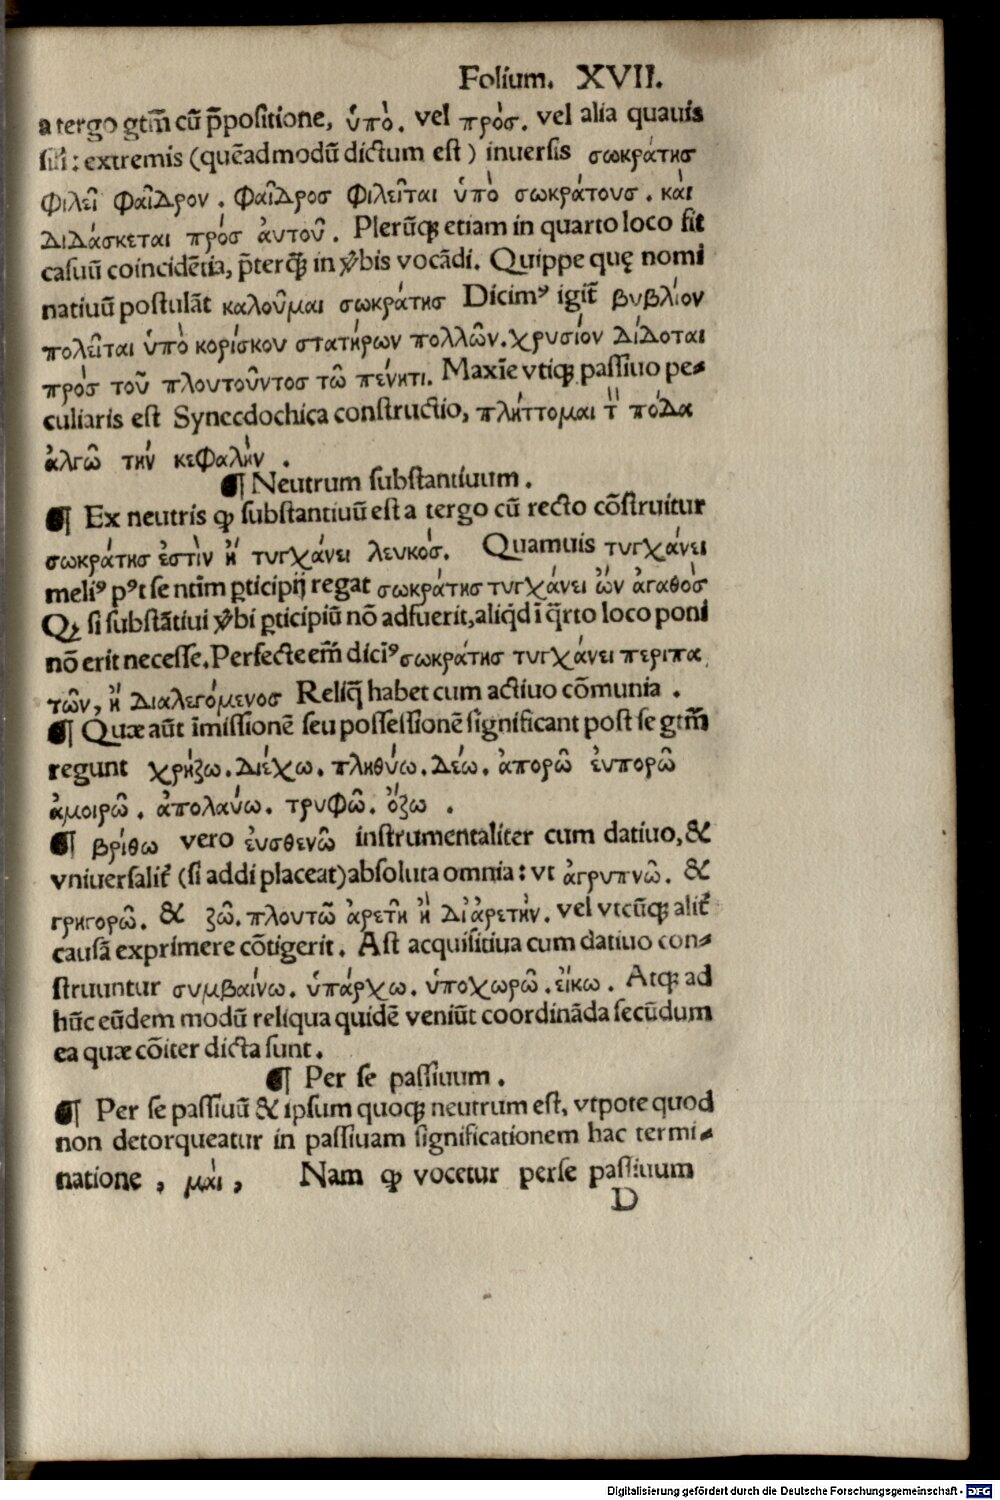 Folium. XVII.
a tergo gtm̄ cū p̄positione, ὑπὸ. vel πρὸσ. vel alia quauis
sil̄i: extremis (quēadmodū dictum est) inuersis σωκράτησ
Φιλεῖ Φαῖδρον. Φαῖδροσ Φιλεῖται ὑπὸ σωκράτουσ. κὰι
διδάσκεται πρόσ ἀυτοῦ. Plerūqꝫ etiam in quarto loco sit
casuū coincidētia, p̄terqꝫ̄ in v̉bis vocādi. Quippe quę nomi
natiuū postulāt καλοῦμαι σωκράτησ Dicimꝰ igit̄ βυβλίον
πολεῖται ὑπὸ κορίσκου στατήρων πολλῶν. χρυσίον δίδοται
πρὸσ τοῦ πλουτοῦντοσ τῶ πένητι. Maxīe vtiqꝫ passiuo pe⸗
culiaris est Synecdochica constructio, πλήττομαι τ̏ πόδα
ἀλγῶ τὴν κεΦαλὴν.
¶ Neutrum substantiuum.
¶ Ex neutris ꝙ substantiuū est a tergo cū recto cōstruitur
σωκράτησ ἐστὶν ἢ τυγχάνει λευκόσ. Quamuis τυγχάνει
meliꝰ pꝰt se ntīm ꝑticipij regat σωκράτησ τυγχάνει ὢν ἀγαθὸσ
Qꝫ si substātiui v̉bi ꝑticipiū nō adfuerit, aliq̇d ī q̄rto loco poni
nō erit necesse. Perfecte em̄ diciꝰ σωκράτησ τυγχάνει περιπα
τῶν, ἢ διαλεγόμενοσ Reliq̄ habet cum actiuo cōmunia.
¶ Quæ aūt īmissionē seu possessionē significant post se gtm̄
regunt χρήζω. διέχω. πληθύω. δέω. ἀπορῶ ἐυπορῶ
ἀμοιρῶ. ἀπολαύω. τρυΦῶ. ὄζω.
¶ βρίθω vero ἐυσθενῶ instrumentaliter cum datiuo, &
vniuersalit̄ (si addi placeat) absoluta omnia: vt ἀγρυπνῶ. &
γρηγορῶ. & ζῶ. πλουτῶ ἀρετῆ ἢ δἰἀρετὴν. vel vtcūqꝫ alit̄
causā exprimere cōtigerit. Ast acquisitiua cum datiuo con⸗
struuntur συμβαίνω. ὑπάρχω. ὑποχωρῶ. ἐίκω. Atqꝫ ad
hūc eūdem modū reliqua quidē veniūt coordināda secūdum
ea quæ cōiter dicta sunt.
¶ Per se passiuum.
¶ Per se passiuū & ipsum quoqꝫ neutrum est, vtpote quod
non detorqueatur in passiuam significationem hac termi⸗
natione, μὰι, Nam ꝙ vocetur perse passiuum
D
Digitalisierung gefördert durch die Deutsche Forschungsgemeinschaft - DFG